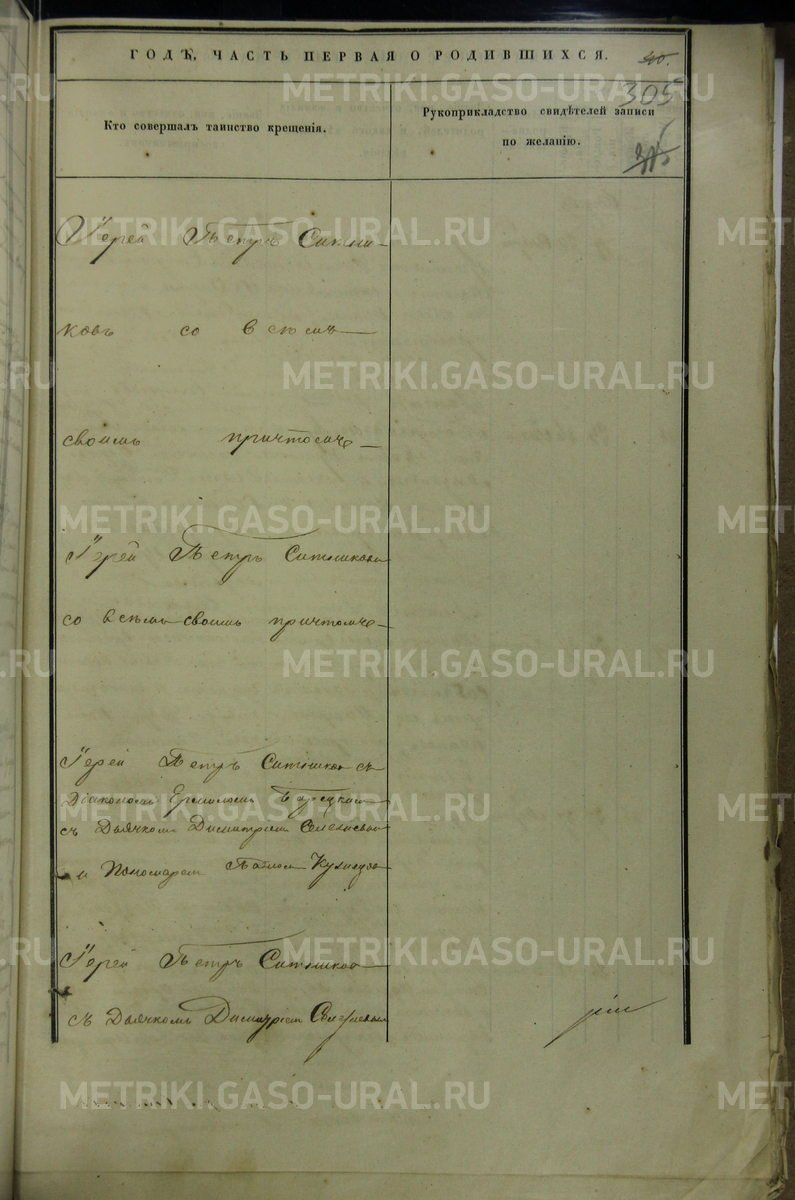 ГОДЪ, ЧАСТЬ ПЕРВАЯ О РОДИВШИХСЯ.
305
Кто совершалъ таинство крещенія.
Рукоприкладство свидѣтелей записи
по желанію.
Іерей Петръ Ситни-
ковъ со всѣмъ
своимъ причтомъ
Іерей Петръ Ситниковъ
со всѣмъ своимъ причтомъ
Іерей Петръ Ситниковъ съ
Діакономъ Ермиломъ
съ Дьячкомъ Димитріемъ
и Пономаремъ Павломъ
Іерей Петръ Ситниковъ
съ Дьячкомъ Димитріемъ
METRIKI.GASO-URAL.RU